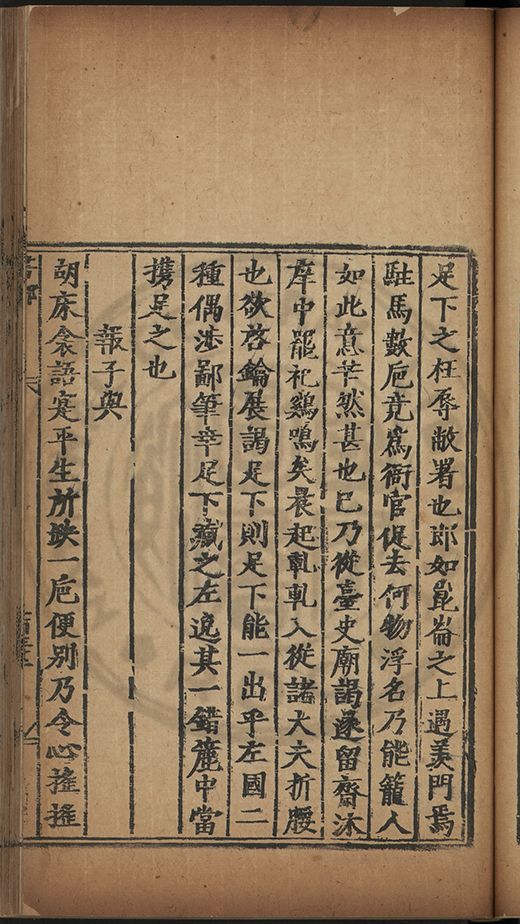 足下之枉辱敝署也郎如崑崙之上遇羨門焉
駐馬數卮竟爲衙官促去何物浮名乃能籠人
如此意苦然甚也已乃從臺史廟謁遂留齋沐
庠中罷祀鷄鳴矣晨起軋軋入從諸大夫折腰
也欲啓鑰展謁足下則足下能一出乎左國二
種偶涉鄙筆幸足下藏之左逸其一錯簏中當
携足之也
報子與
胡床衾語寔平生所缺一卮便別乃令心搖搖